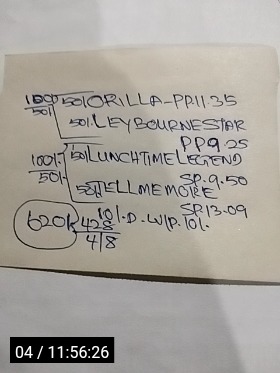 100/- 50/ ORILLA-PP.11.35
50/- 50/ LEYBOURNE STAR
PP9.25
100/- 50/ LUNCHTIME LEGEND
50/- SP.9.50
50/ TELL ME MORE
SP.13.09
620/- 10/.D.W/P.10/.
428
4/8
04 / 11:56:26